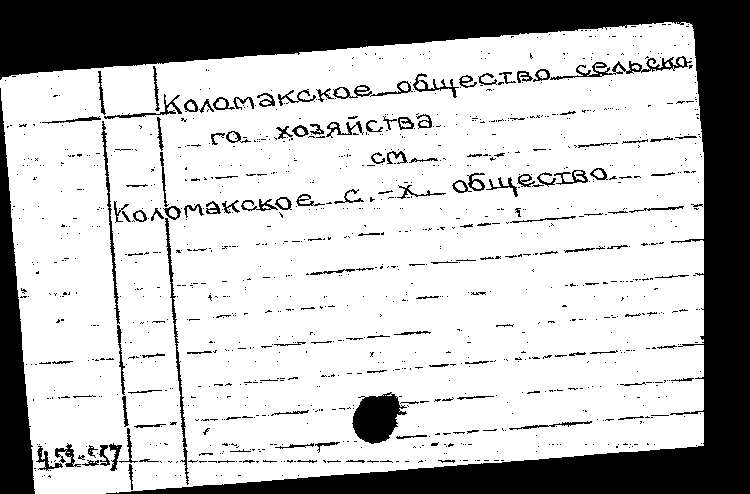 Коломакское общество сельско-
го хозяйства
см.
Коломакское с.-х. общество
459-557